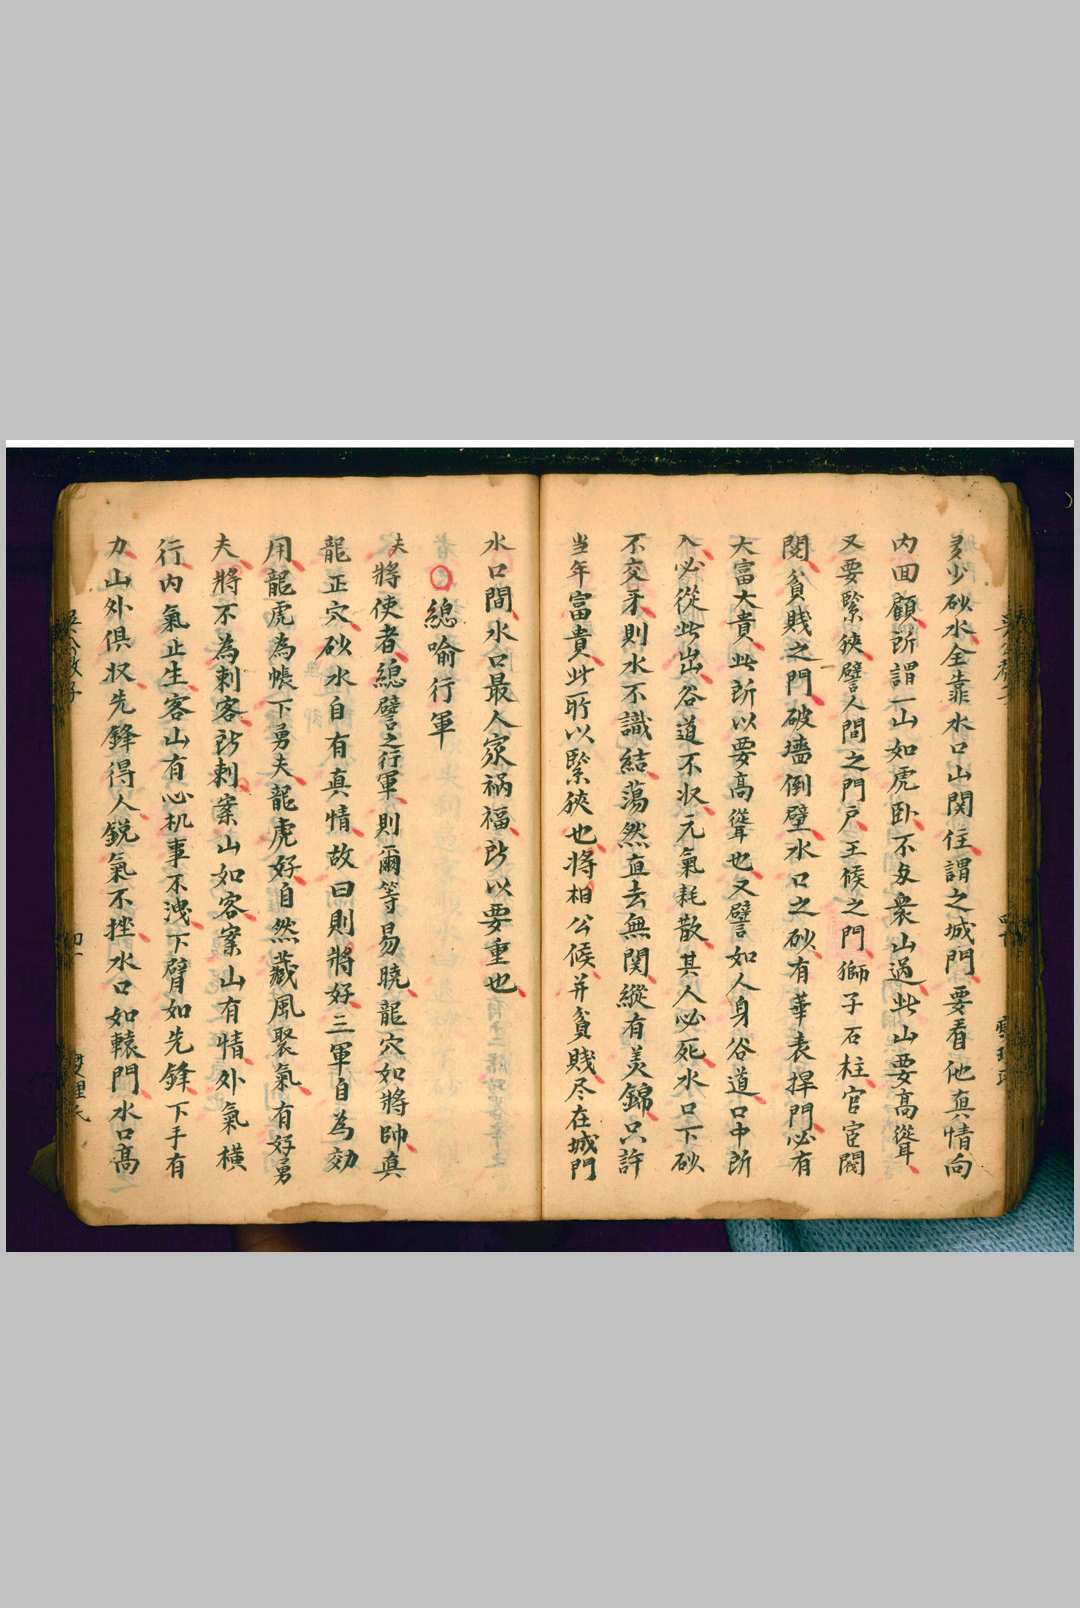 多少砂水全靠水口山関住謂之城門要看他真情向
内回顧所謂一山如虎卧不女衆山過此山要高聳
又要緊狹譬人間之門戶王候之門獅子石柱官宦閥
閱貧賤之門破墻倒壁水口之砂有華表捍門必有
大富大貴此所以要高聳也又譬如人身谷道口中所
入必從此出谷道不収元氣耗散其人必死水口下砂
不交牙則水不識結蕩然直去無関縱有美錦只許
当年富貴此所以緊狹也將相公候并貧賤尽在城門
水口間水口最人家禍福所以要重也
○總喻行軍
夫將使者總譬之行軍則爾等易曉龍穴如將帥真
龍正穴砂水自有真情故曰則將好三軍自為効
用龍虎為帳下勇夫龍虎好自然藏風聚氣有好勇
夫將不為刺客所刺案山如客案山有情外氣橫
行内氣止生客山有心机事不洩下臂如先鋒下手有
力山外俱収先鋒得人鋭氣不挫水口如轅門水口高